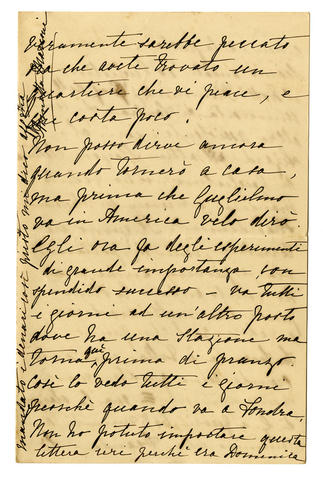 Veramente sarebbe peccato
ora che avete trovato un
quartiere che vi piace, e
che costa poco.
Non posso dirve ancora
quando tornerò a casa,
ma prima che Guglielmo
va in America velo dirò.
Egli ora fa degli esperimenti
di grande importanza con
splendido successo – va tutti
i giorni ad un'altro posto
dove ha una Stazione ma
torna qui prima di pranzo.
Così lo vedo tutti i giorni
perchè quando va a Londra.
Non ho potuto impostare questa
lettera ieri perchè era Domenica
mandato i denari così presto ma dico